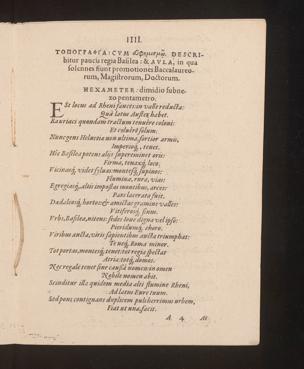 IIII.
ΤΟΠΟΓΡΑΦΙΑ: CVM DESCRI-
bitur paucis regia Basilea: & AVLA, in qua
solennes fiunt promotiones Baccalaureo-
rum, Magistrorum, Doctorum.
HEXAMETER: dimidio subne-
xo pentametro.
Est locus ad Rheni sancteis in valle reducta:
Quà latus Auster habet.
Rauriaci quondam tractum tenuêre coloni:
Et coluêre solum.
Nunc gens Helvetia non ultima, fortior armis,
Imperioq́, tenet.
Hic Basilea potens aliis supereminet oris:
Firma, tenaxq́, loco.
Vicinosq́, videt sylvas montesq́, supinos:
Flumina, rura, vias:
Egregiasq́, altis impostas montibus, arces:
Pars lacerato fuit.
Dædaleosq́, hortos & amictas gramine valles:
Vitiferosq́, sinus.
Urbs, Basilea, nitens: sedes Iove digna vel ipso:
Pieridumq́, choro.
Viribus aucta, viris sapientibus aucta triumphat:
Teneq́, Roma minor.
Tot portas, monteisq́, tenet: tot regia spectat
Atria: totq́, domos.
Nec regale tenet sine causâ nomen: in omen
Nobile nomen abit.
Scinditur illa quidem media alti flumine Rheni,
Ad latus Eure tuum.
Sed pons contignans duplicem pulcherrimus urbem,
Fiat ut una, facit.
A 4 At